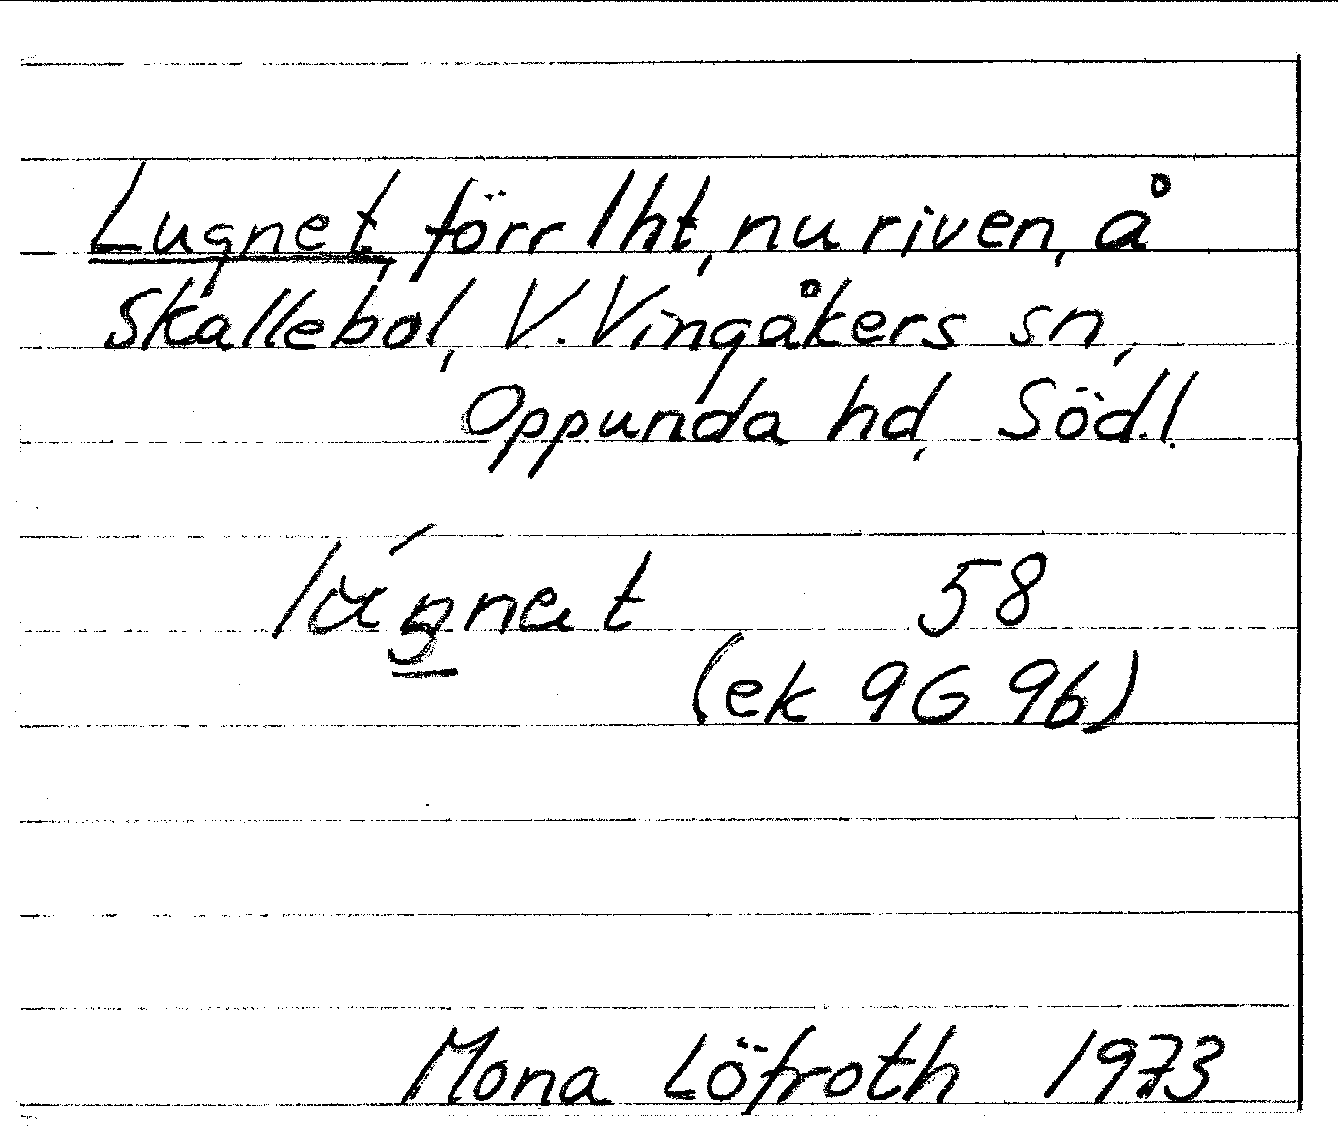 Lugnet, förr lht, nu riven, å
Skallebol, V. Vingåkers sn,
Oppunda hd, Södl.
58
(ek 9G 9b)
Mona Löfroth 1973